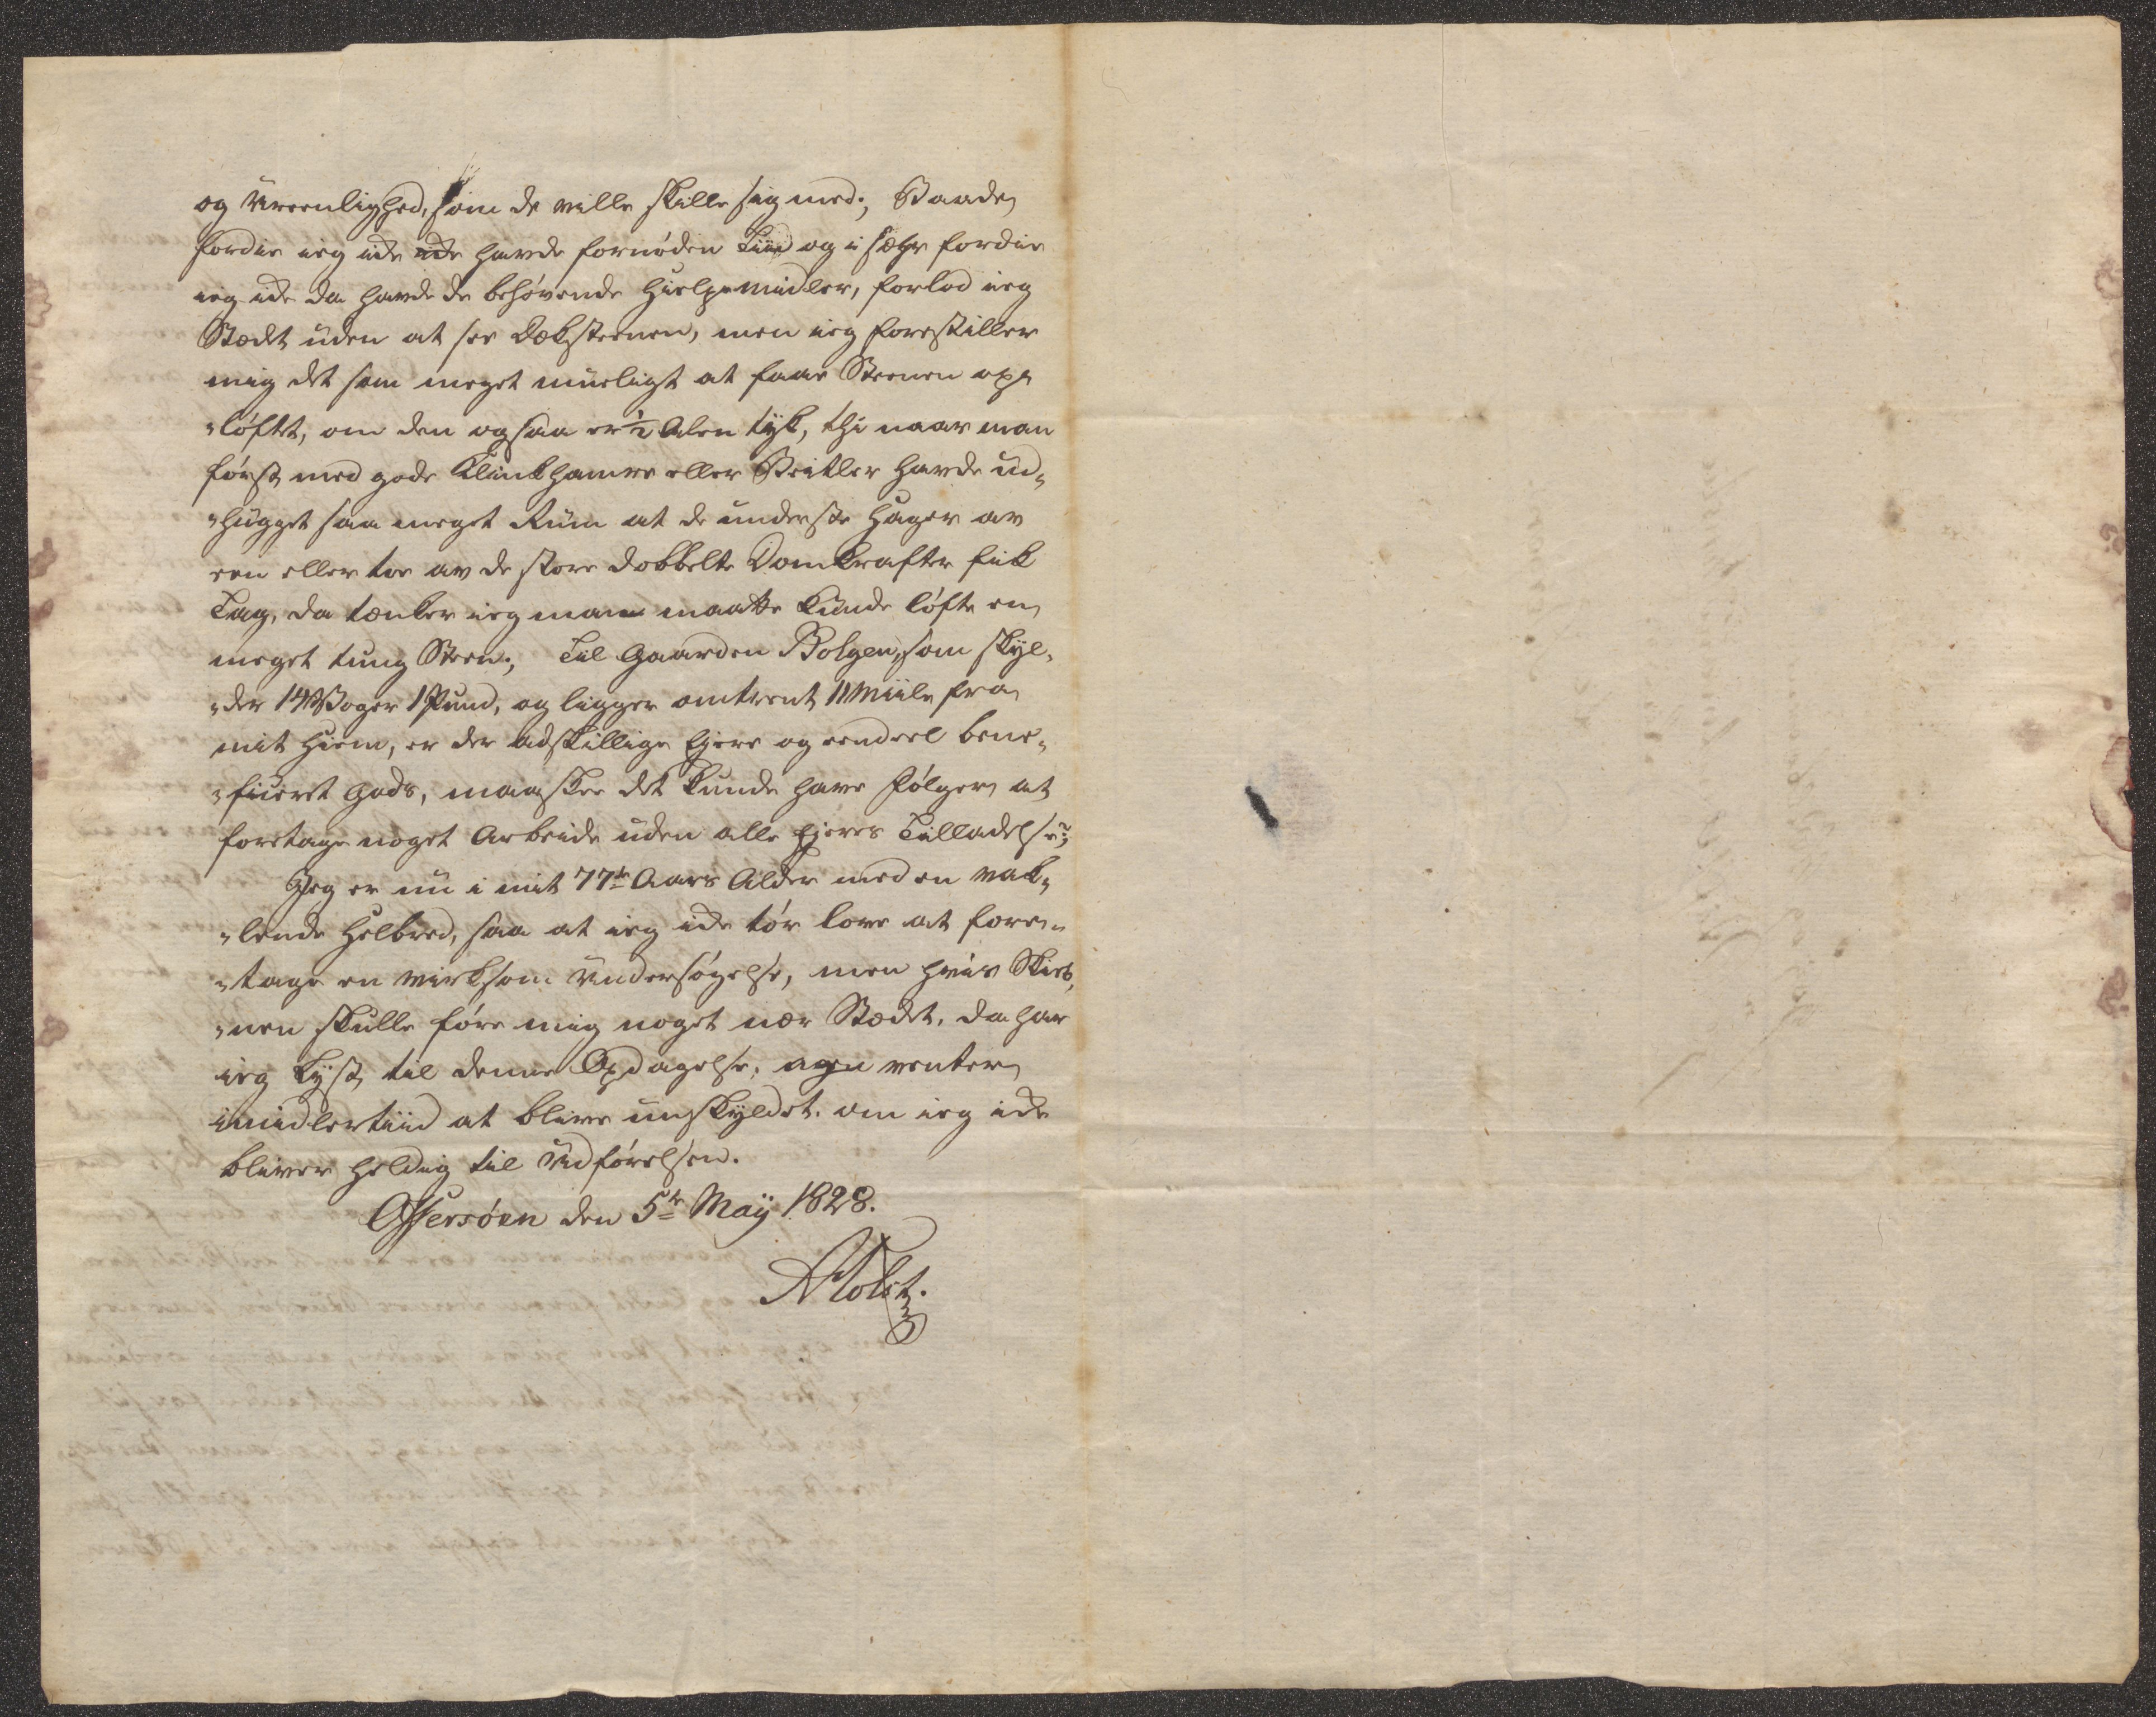 og Ureenlighed, som de ville skille sig med; Baade
fordie ieg icke havde fornøden Tiid og i sæhr fordie
ieg icke da havde de behøvende Hielpemidler, forlod ieg
Stædet uden at see Dæksteenen, men ieg forestiller
mig det som meget mueligt at faae Steenen op„
„løftet, om den ogsaa er ½ Alen tyk, thi naar man
først med gode Klinkhamre eller Beitler havde ud„
„hugget saa meget Rum at de underste Hager av
een eller toe av de store dobbelte Domkrafter fik
Tag, da tænker ieg man maatte kunde løfte en
meget tung Steen; Til Gaarden Bolgen, som skyl„
„der 14 Voger 1 Pund, og ligger omtrent 11 Miile fra
mit Hiem, er der adskillige Ejere og eendeel bene„
„ficeret Gods, maaskee det kunde have Følger at
foretage noget Arbeide uden alle Ejeres Tilladelse;
Jeg er nu i mit 77de Aars Alder med en vak„
„lende Helbred, saa at ieg icke tør love at fore„
„tage en virksom Undersøgelse, men hvis Skieb„
„nen skulle føre mig noget nær Stædet, da har
ieg Lyst til denne Opdagelse, venter
imidlertiid at blive unskyldet, om ieg icke
bliver heldig til Udførelsen.
Assersøen den 5te Maÿ 1828.